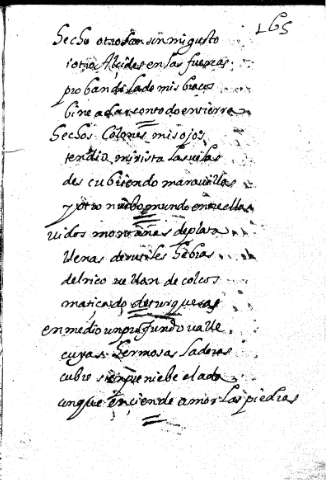 165
hecho otro Iban sin mi gusto
i otro Alcides en las fuerzas
probando la de mis bracos
bine a dar con todo en tierra
hechos Colones mis ojos
tendio mi vista las uelas
descubriendo marauillas
y otro nuebo mundo en ella
uidos montañas de plata
llenas de rutiles hebras
del rico uellon de colcos
maticado de turquesas
en medio un profundo ualle
cuyas hermosas laderas
cubre siempre niebe elada
aunque enciende amor las piedras